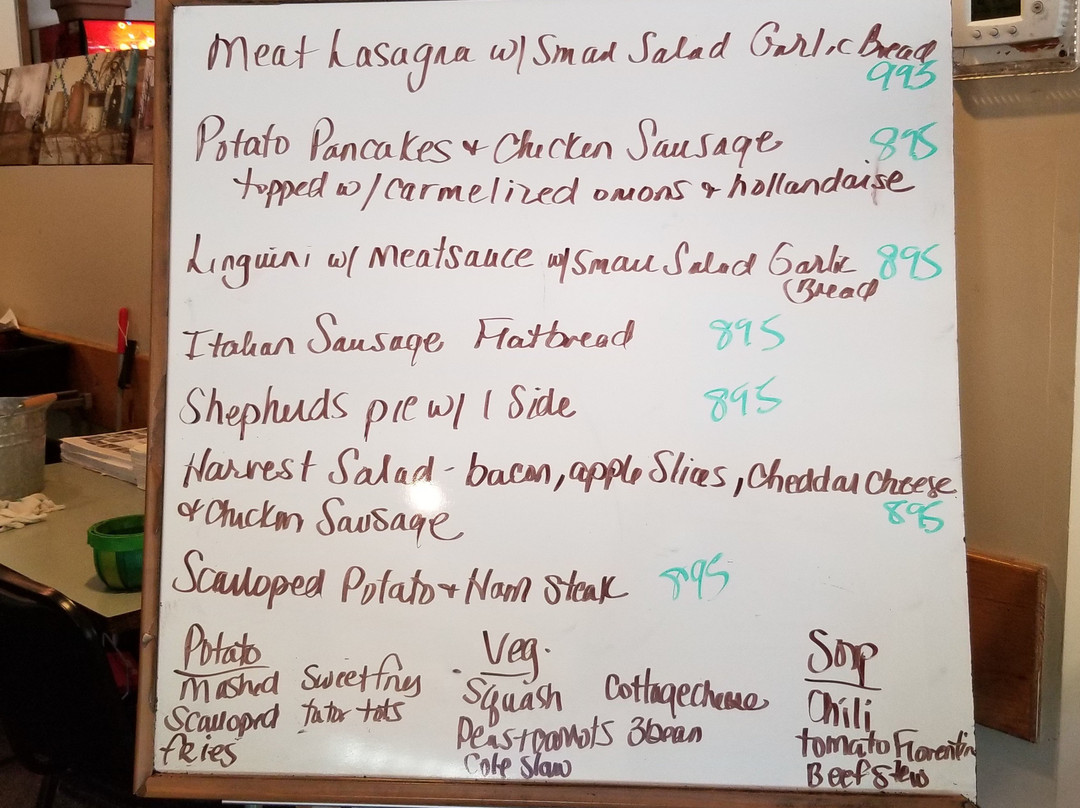 Meat Lasagna w/ Small Salad Garlic Bread
995
Potato Pancakes & Chicken Sausage 895
topped w/ Carmelized onions & hollandaise
Linguini w/ Meatsauce w/ Small Salad Garlic 895
Bread
Italian Sausage Flatbread 895
Shepherds pie w/ 1 Side 895
Harvest Salad - bacon, apple Slices, Cheddar Cheese
& Chicken Sausage 895
Scalloped Potato & Ham Steak 895
Potato
Mashed Sweet fries
Scalloped tator tots
fries
Veg.
Squash Cottage cheese
Peas & carrots 3 bean
Cole Slaw
Soup
Chili
tomato Florentin
Beef Stew